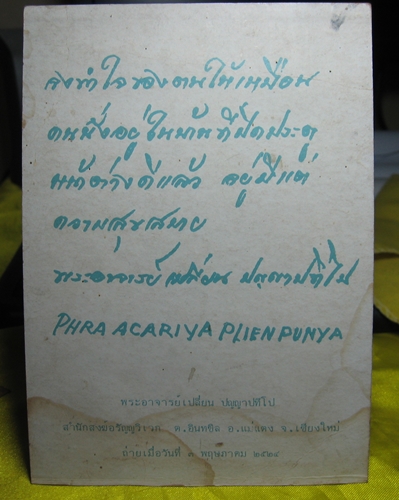 จงทำใจของตนให้เหมือน
คนนั่งอยู่ในบ้านที่ปิดประตู
หน้าต่างดีแล้ว อยู่มีแต่
ความสุขสบาย
พระอาจารย์เปลี่ยน ปญฺญาปทีโป
PHRA ACARIYA PLIEN PUNYA
พระอาจารย์เปลี่ยน ปญฺญาปทีโป
สำนักสงฆ์อรัญญวิเวก ต.อินทขิล อ.แม่แตง จ.เชียงใหม่
ถ่ายเมื่อวันที่ ๓ พฤษภาคม ๒๕๒๔